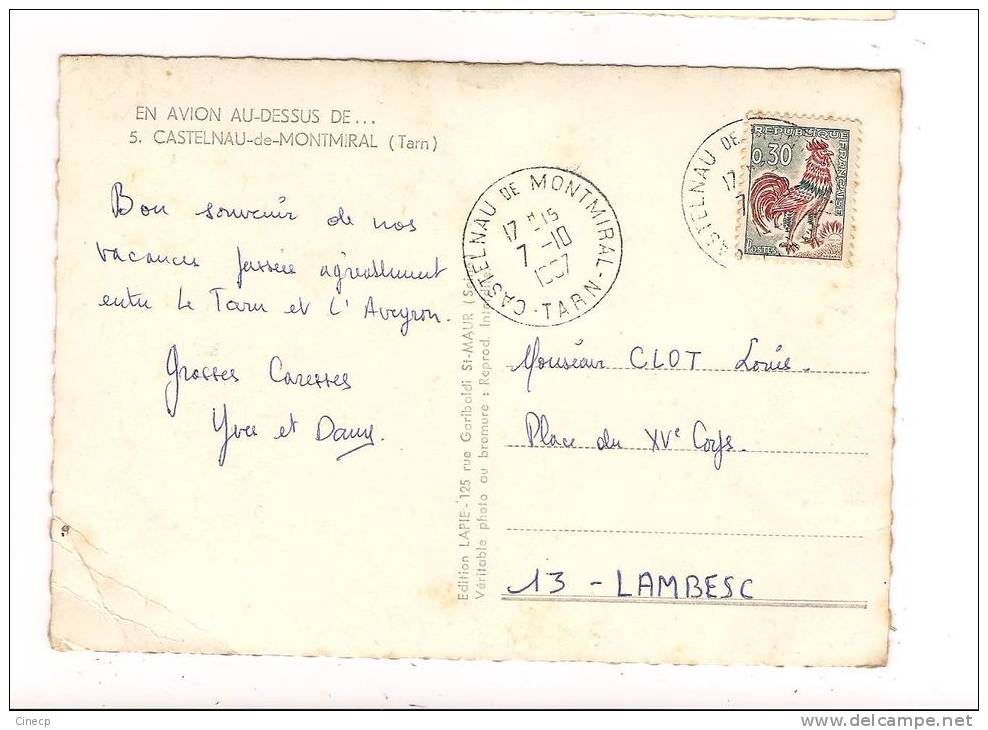 EN AVION AU-DESSUS DE...
5. CASTELNAU-de-MONTMIRAL (Tarn)
Bon souvenir de nos
vacances passée agréablement
entre Le Tarn et L'Aveyron.
Grosses Caresses
Yves et Dany.
CASTELNAU DE MONTMIRAL - TARN
17 H 15
7 -10
REPUBLIQUE FRANÇAISE
0,30
POSTES
CASTELNAU DE
17
7
Edition LAPIE - 125 rue Garibaldi St-MAUR
Véritable photo au bromure : Reprod.
Monsieur CLOT Louis.
Place du XVe Corps.
13 - LAMBESC
Cinecp
http://www.delcampe.net